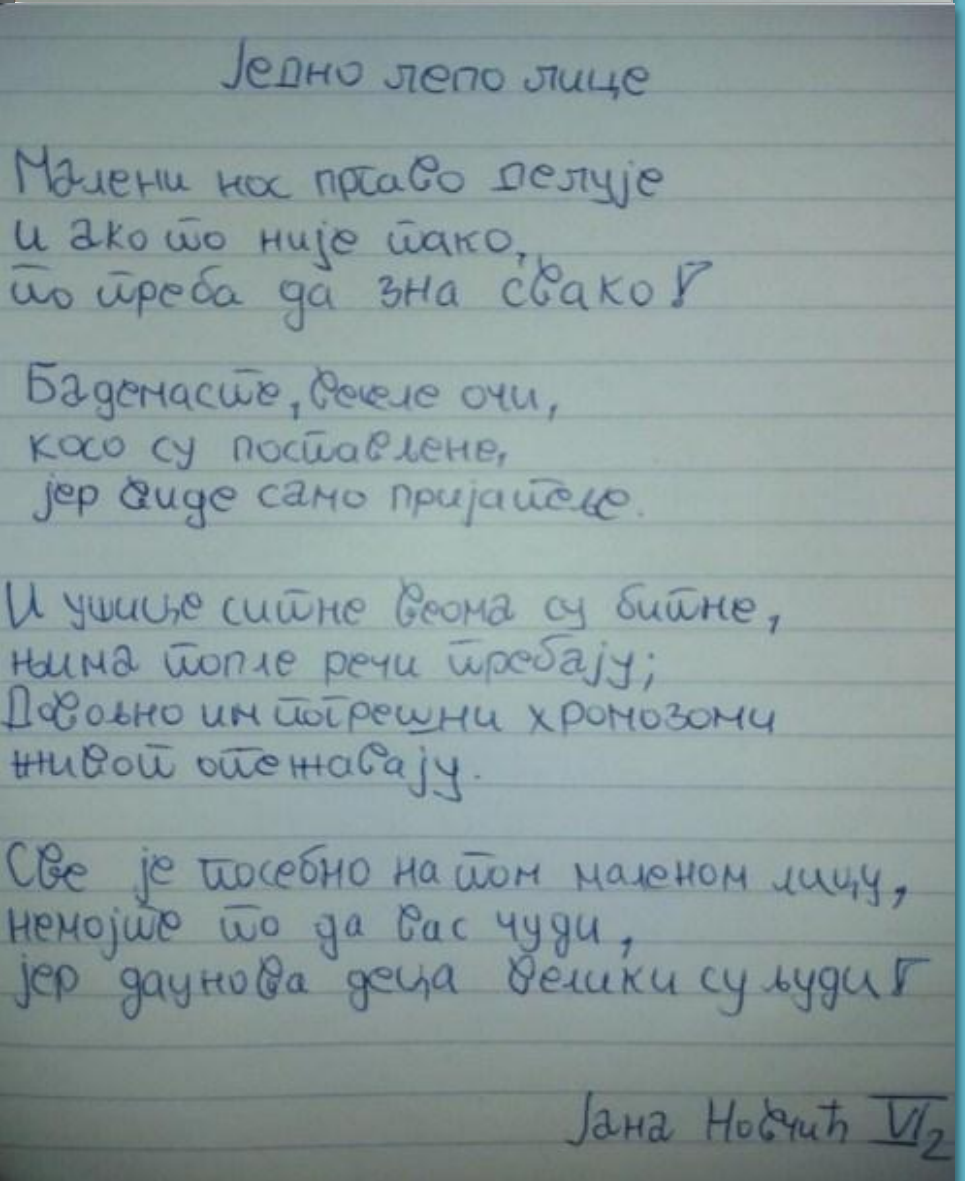 Једно лепо лице
Малени нос прћаво делује
и ако то није тако,
то треба да зна свако!
Бадемасте, веселе очи,
косо су постављене,
јер виде само пријатеље.
И ушице ситне веома су битне,
њима топле речи требају;
Довољно им погрешни хромозоми
живот отежавају.
Све је посебно на том маленом лицу,
немојте то да вас чуди,
јер даунова деца велики су људи!
Јана Новчић VI2